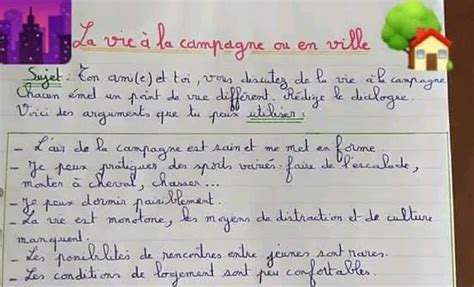 La vie à la campagne ou en ville
Sujet : Ton ami(e) et toi, vous discutez de la vie à la campagne
Chacun émet un point de vue différent. Rédige le dialogue.
Voici des arguments que tu peux utiliser :
- L'air de la campagne est sain et me met en forme
- Je peux pratiquer des sports variés : faire de l'escalade,
monter à cheval, chasser ...
- Je peux dormir paisiblement.
- La vie est monotone, les moyens de distraction et de culture
manquent.
- Les possibilités de rencontres entre jeunes sont rares.
- Les conditions de logement sont peu confortables.